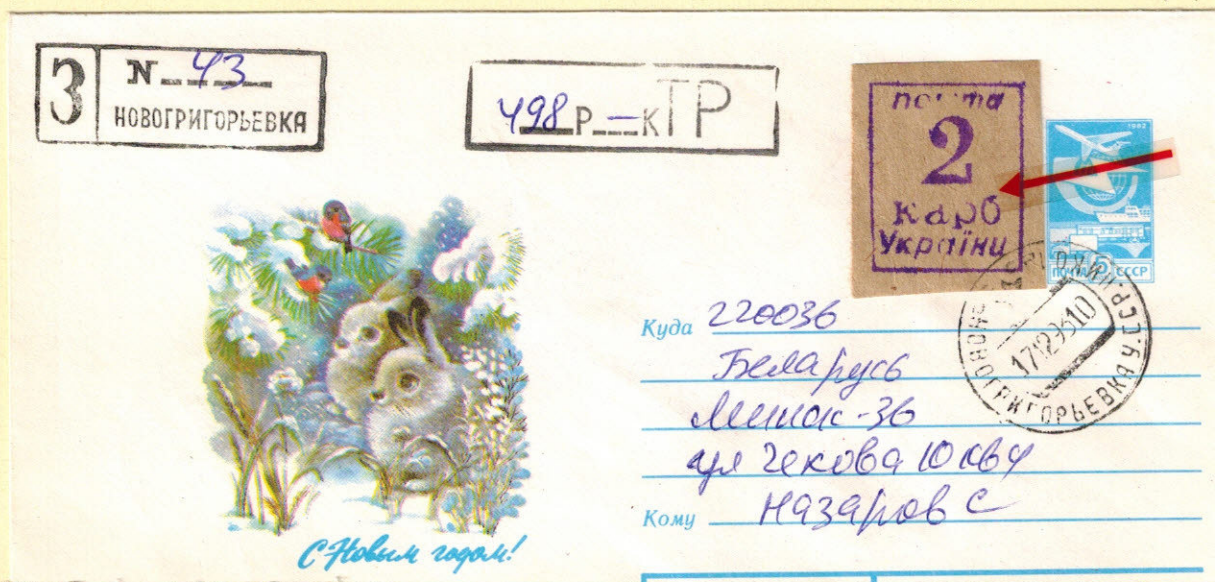 З
N 43
НОВОГРИГОРЬЕВКА
498 Р — К ТР
пошта
2
карб
України
1982
ПОЧТА 5 СССР
17 12 93 10
НОВОГРИГОРЬЕВКА
Куда 220036
Беларусь
Минск-36
ул Чекова 10 кв 4
Кому Назаров С
С Новым годом!